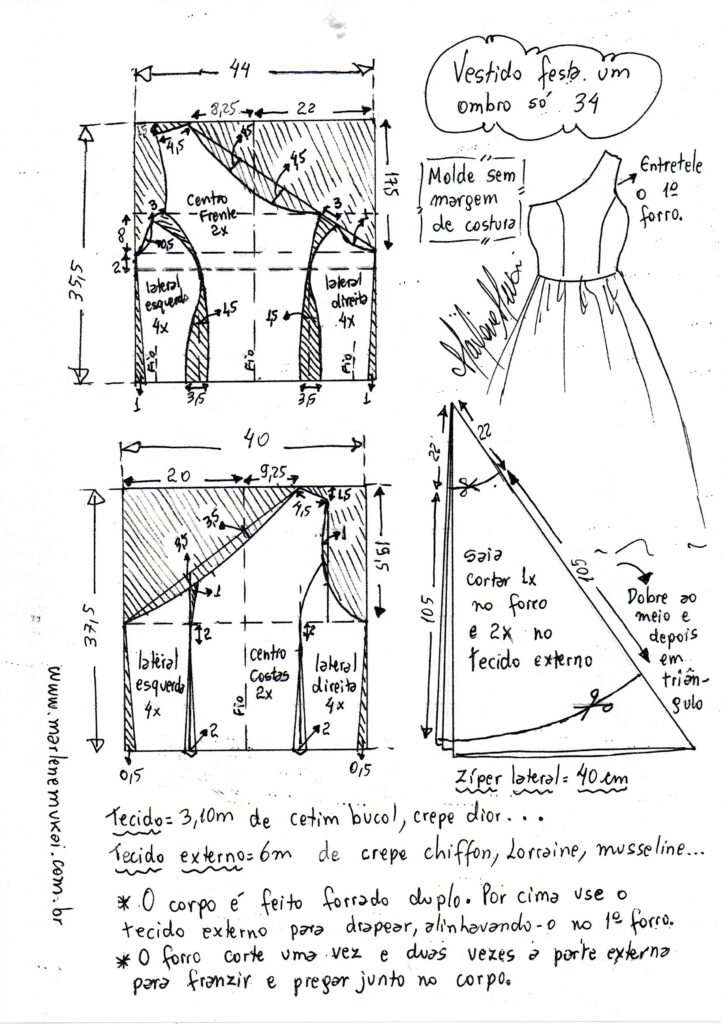 Vestido festa um
ombro só 34
Molde sem
margem
de costura
Entretele
o 1º
forro.
44
8,25
22
1,5
4,5
4,5
4,5
17,5
35,5
Centro
Frente
2x
3
3
8
0,5
2
lateral
esquerda
4x
1,5
1,5
lateral
direita
4x
Fio
Fio
Fio
1
3,5
3,5
1
40
20
9,25
1,5
4,5
3,5
1
19,5
37,5
1
2
2
lateral
esquerda
4x
Centro
Costas
2x
lateral
direita
4x
Fio
2
2
0,5
0,5
22
22
105
105
saia
cortar 1x
no forro
e 2x no
tecido externo
Dobre ao
meio e
depois
em
triân-
gulo
Zíper lateral = 40 cm
www.marlenemukai.com.br
Tecido = 3,10m de cetim bucol, crepe dior...
Tecido externo = 6m de crepe chiffon, Lorraine, musseline...
* O corpo é feito forrado duplo. Por cima use o
tecido externo para drapear, alinhavando-o no 1º forro.
* O forro corte uma vez e duas vezes a parte externa
para franzir e pregar junto no corpo.